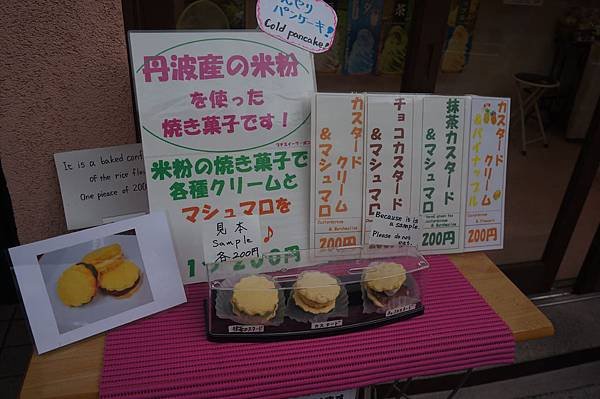 ひんやり
パンケーキ!
Cold pancake!
丹波産の米粉
を使った
焼き菓子です!
米粉の焼き菓子で
各種クリームと
マシュマロを
1つ200円
It is a baked
of the rice
One pieace of 200
見本
Sample
各200円
カスタードクリーム
&マシュマロ
200円
チョコカスタード
&マシュマロ
Because it is
a sample.
Please do not
eat.
抹茶カスタード
&マシュマロ
200円
カスタードクリーム
&パイナップル
200円